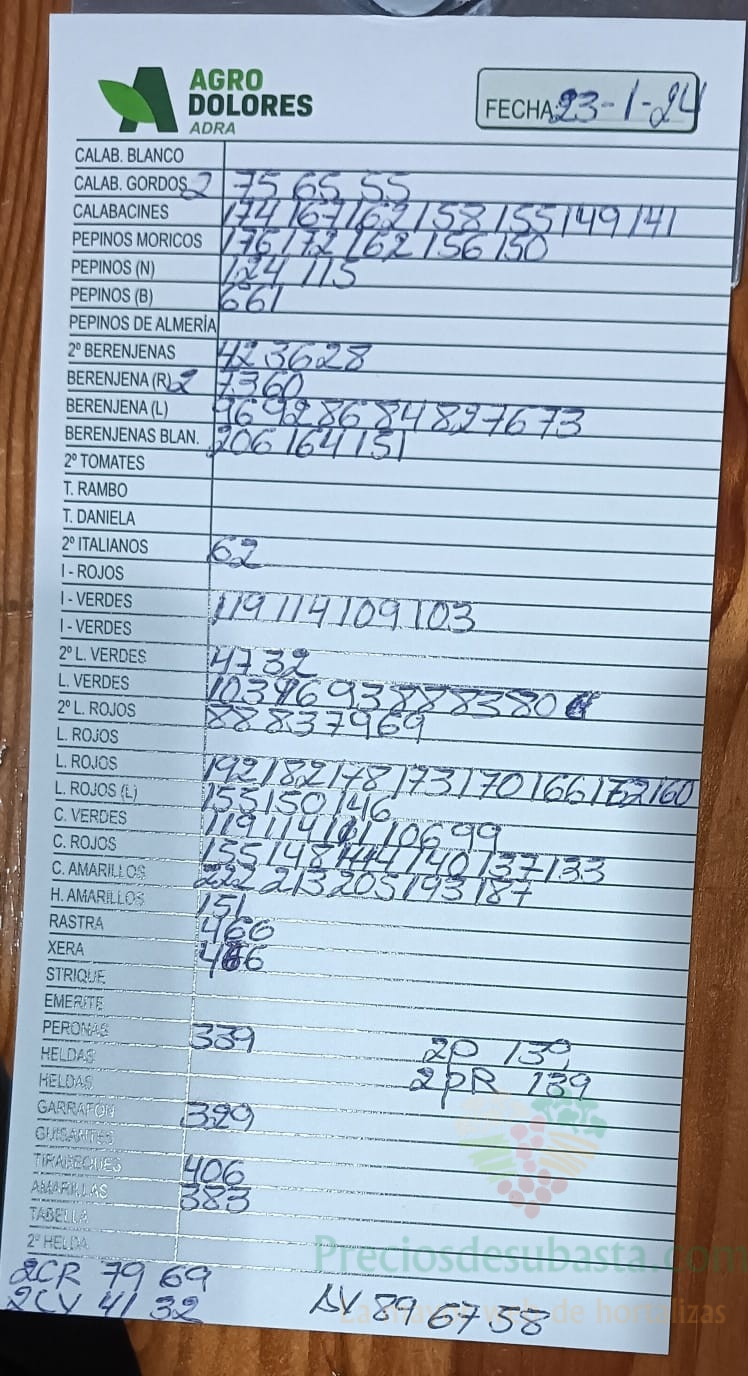 AGRO
DOLORES
ADRA
FECHA 23-1-24
CALAB. BLANCO
CALAB. GORDOS 2 75 65 55
CALABACINES 174 167 162 158 155 149 141
PEPINOS MORICOS 176 172 162 156 150
PEPINOS (N) 124 115
PEPINOS (B) 661
PEPINOS DE ALMERÍA
2º BERENJENAS 42 36 28
BERENJENA (R) 2 73 60
BERENJENA (L) 96 92 86 84 82 76 73
BERENJENAS BLAN. 206 164 151
2º TOMATES
T. RAMBO
T. DANIELA
2º ITALIANOS 62
I - ROJOS
I - VERDES 119 114 109 103
I - VERDES
2º L. VERDES 47 32
L. VERDES 103 96 93 88 83 80
2º L. ROJOS 88 83 79 69
L. ROJOS
L. ROJOS 192 182 178 173 170 166 162 160
L. ROJOS (L) 155 150 146
C. VERDES 119 114 110 106 99
C. ROJOS 155 148 144 140 137 133
C. AMARILLOS 222 213 205 193 187
H. AMARILLOS 151
RASTRA 466
XERA 466
STRIQUE
EMERITE
PERONAS 339 2P 139
HELDAS 2PR 139
HELDAS
GARRAFON 329
GUISANTES
TIRABEQUES 406
AMARILLAS 383
TABELLA
2º HELDA
2CR 79 69
2CV 41 32 AV 89 67 58
Preciosdesubasta.com
La mayor web de hortalizas